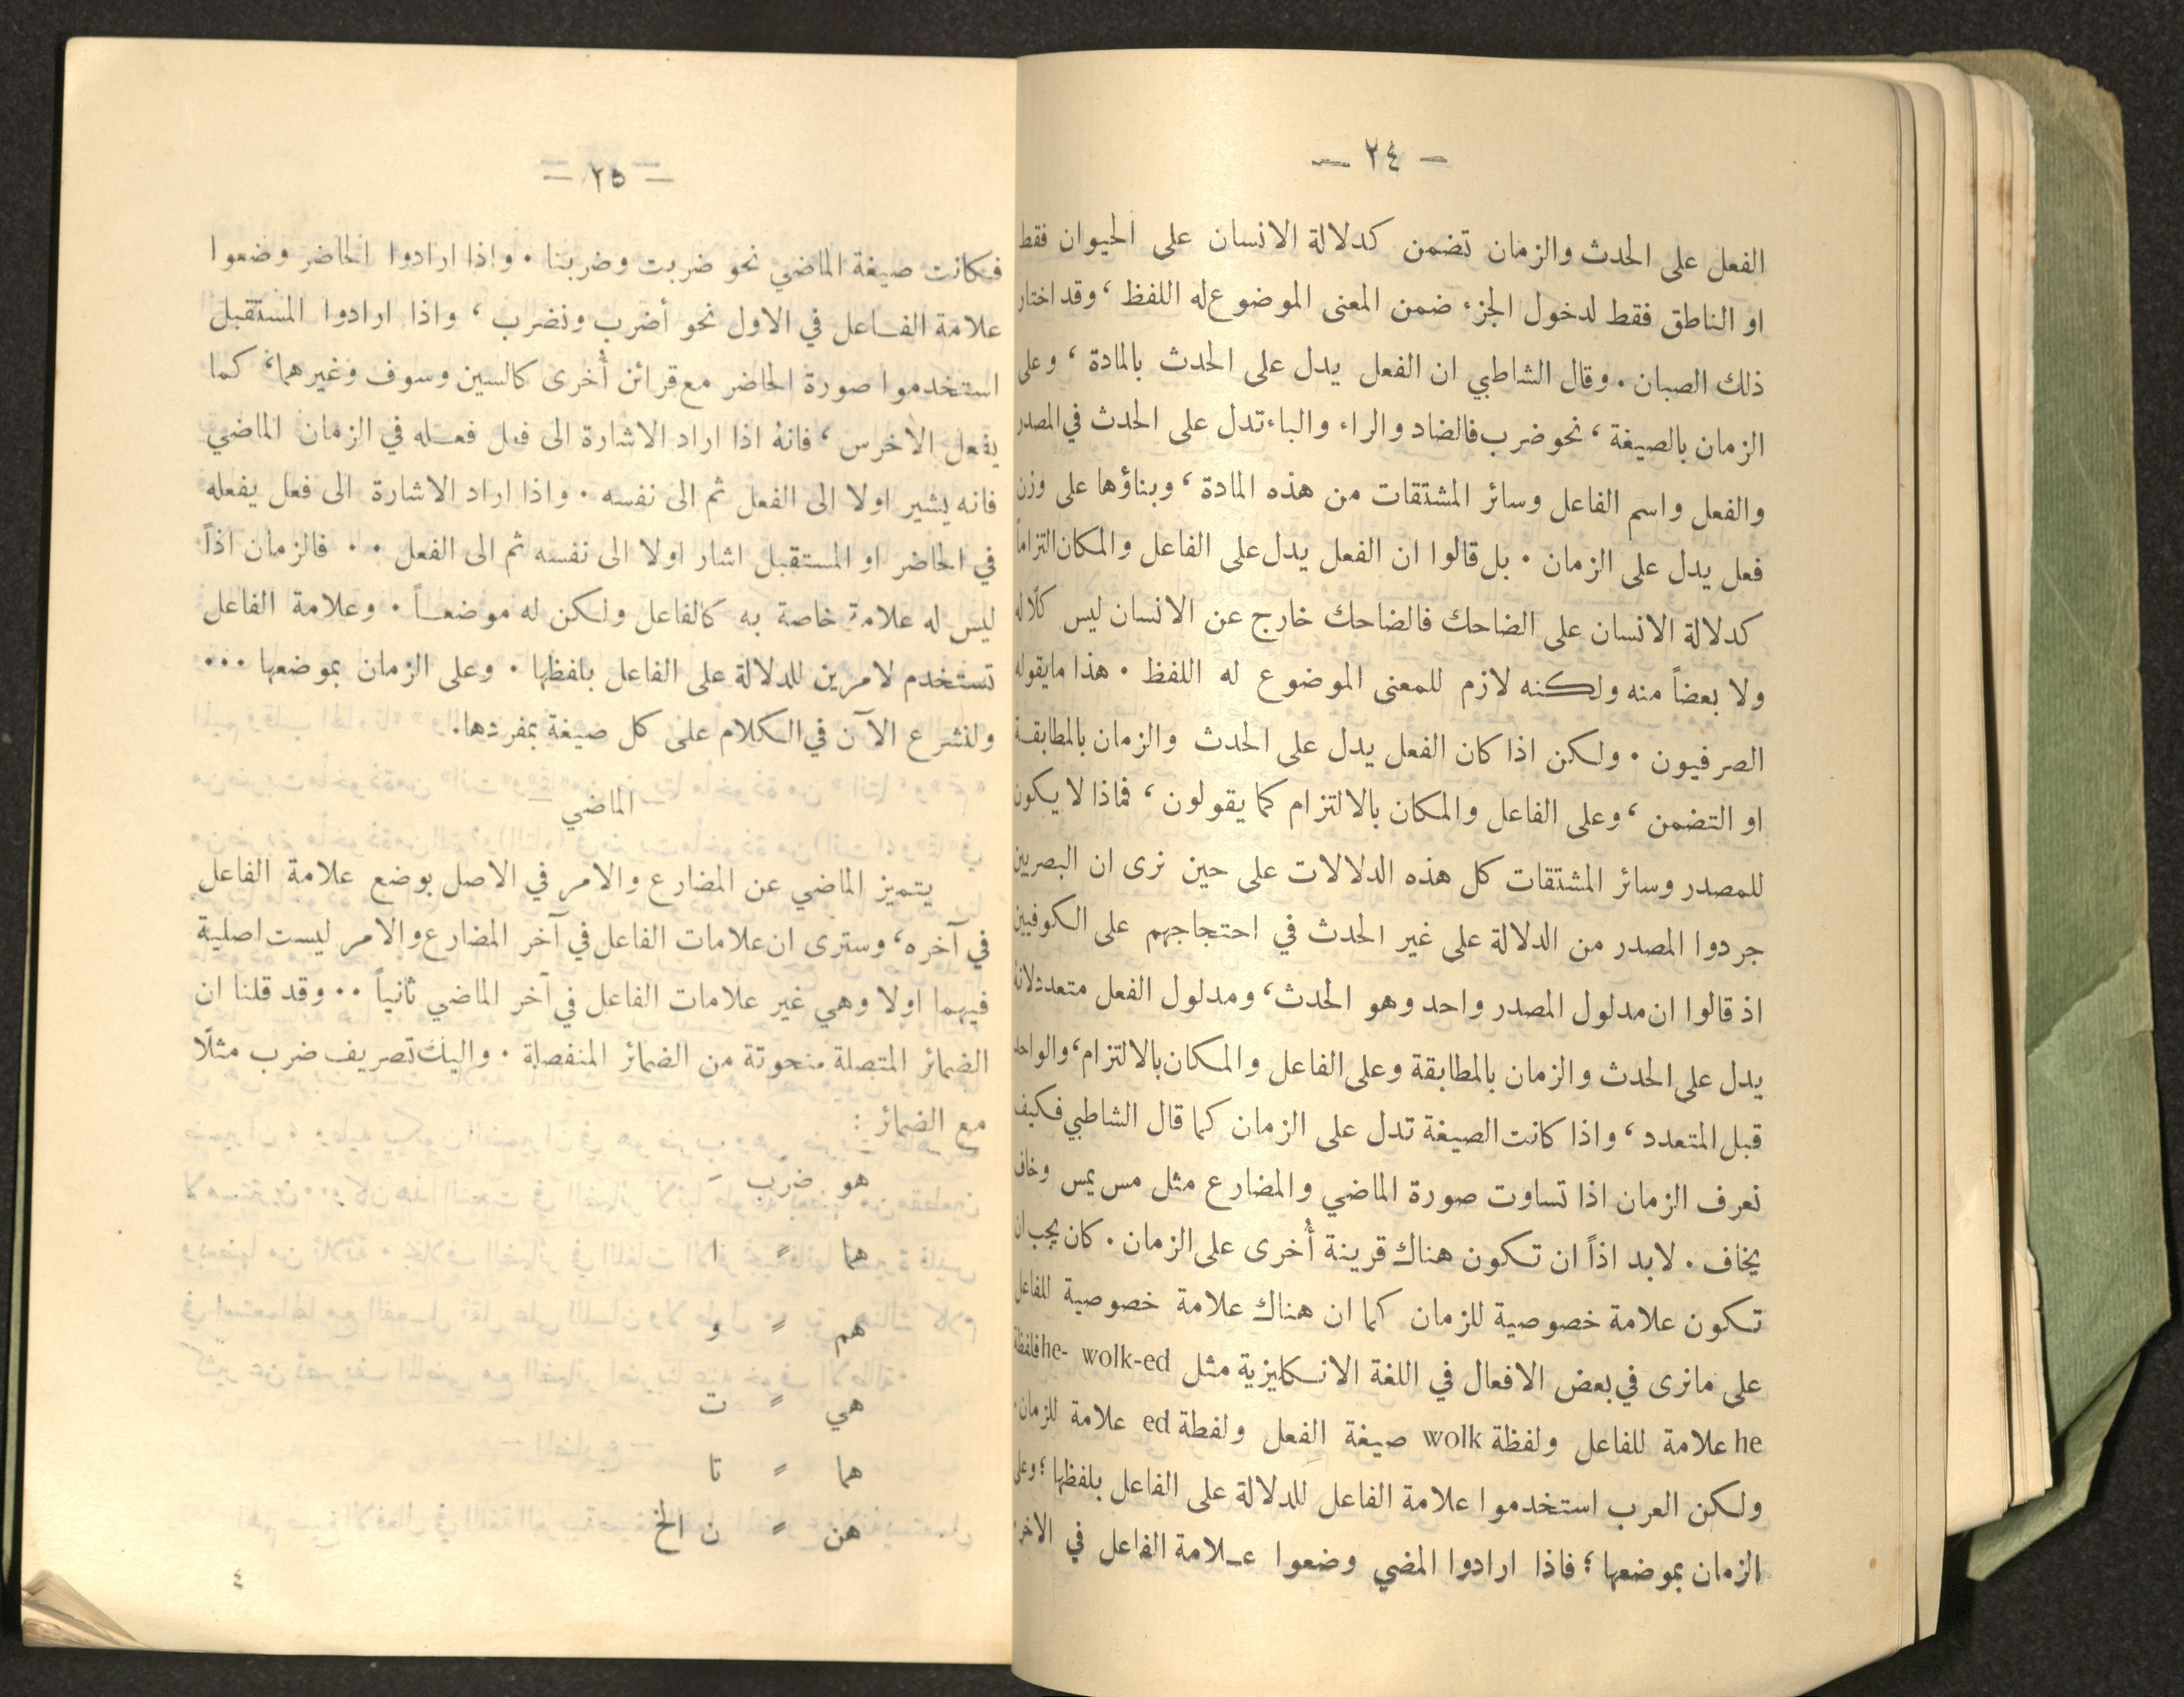 — ٢٤ —
الفعل على الحدث والزمان تضمن كدلالة الانسان على الحيوان فقط
او الناطق فقط لدخول الجزء ضمن المعنى الموضوع له اللفظ ، وقد اختار
ذلك الصبان . وقال الشاطبي ان الفعل يدل على الحدث بالمادة ، وعلى
الزمان بالصيغة ، نحو ضرب فالضاد والراء والباء تدل على الحدث في المصدر
والفعل واسم الفاعل وسائر المشتقات من هذه المادة ، وبناؤها على وزن
فعل يدل على الزمان . بل قالوا ان الفعل يدل على الفاعل والمكان التزاماً
كدلالة الانسان على الضاحك فالضاحك خارج عن الانسان ليس كلًا له
ولا بعضاً منه ولكنه لازم للمعنى الموضوع له اللفظ . هذا مايقوله
الصرفيون . ولكن اذا كان الفعل يدل على الحدث والزمان بالمطابقة
او التضمن ، وعلى الفاعل والمكان بالالتزام كما يقولون ، فماذا لا يكون
للمصدر وسائر المشتقات كل هذه الدلالات على حين نرى ان البصريين
جردوا المصدر من الدلالة على غير الحدث في احتجاجهم على الكوفيين
اذ قالوا ان مدلول المصدر واحد وهو الحدث ، ومدلول الفعل متعدد لانهُ
يدل على الحدث والزمان بالمطابقة وعلى الفاعل والمكان بالالتزام ، والواحد
قبل المتعدد ، واذا كانت الصيغة تدل على الزمان كما قال الشاطبي فكيف
نعرف الزمان اذا تساوت صورة الماضي والمضارع مثل مس يمس وخاف
يخاف . لابد اذاً ان تكون هناك قرينة أُخرى على الزمان . كان يجب ان
تكون علامة خصوصية للزمان كما ان هناك علامة خصوصية للفاعل
على مانرى في بعض الافعال في اللغة الانكليزية مثل he- wolk-ed فلفظة
he علامة للفاعل ولفظة wolk صيغة الفعل ولفظة ed علامة للزمان .
ولكن العرب استخدموا علامة الفاعل للدلالة على الفاعل بلفظها ؛ وعلى
الزمان بموضعها ؛ فاذا ارادوا المضي وضعوا علامة الفاعل في الاخر
— ٢٥ —
فكانت صيغة الماضي نحو ضربت وضربنا . واذا ارادوا الحاضر وضعوا
علامة الفاعل في الاول نحو أضرب ونضرب ، واذا ارادوا المستقبل
استخدموا صورة الحاضر مع قرائن أُخرى كالسين وسوف وغيرهما ، كما
يفعل الاخرس ، فانهُ اذا اراد الاشارة الى فعل فعله في الزمان الماضي
فانه يشير اولا الى الفعل ثم الى نفسه . واذا اراد الاشارة الى فعل يفعله
في الحاضر او المستقبل اشار اولا الى نفسه ثم الى الفعل . . فالزمان اذاً
ليس له علامة خاصة به كالفاعل ولكن له موضعاً . وعلامة الفاعل
تستخدم لامرين للدلالة على الفاعل بلفظها . وعلى الزمان بموضعها ...
ولنشرع الآن في الكلام على كل صيغة بمفردها.
— الماضي —
يتميز الماضي عن المضارع والامر في الاصل بوضع علامة الفاعل
في آخره ، وسترى ان علامات الفاعل في آخر المضارع والامر ليست اصلية
فيهما اولا وهي غير علامات الفاعل في آخر الماضي ثانياً .. وقد قلنا ان
الضمائر المتصلة منحوتة من الضمائر المنفصلة . واليك تصريف ضرب مثلًا
مع الضمائر :
هو ضرب َ
هما " ا
هم " و
هي " ت
هما " تا
هن " ن الخ
٤